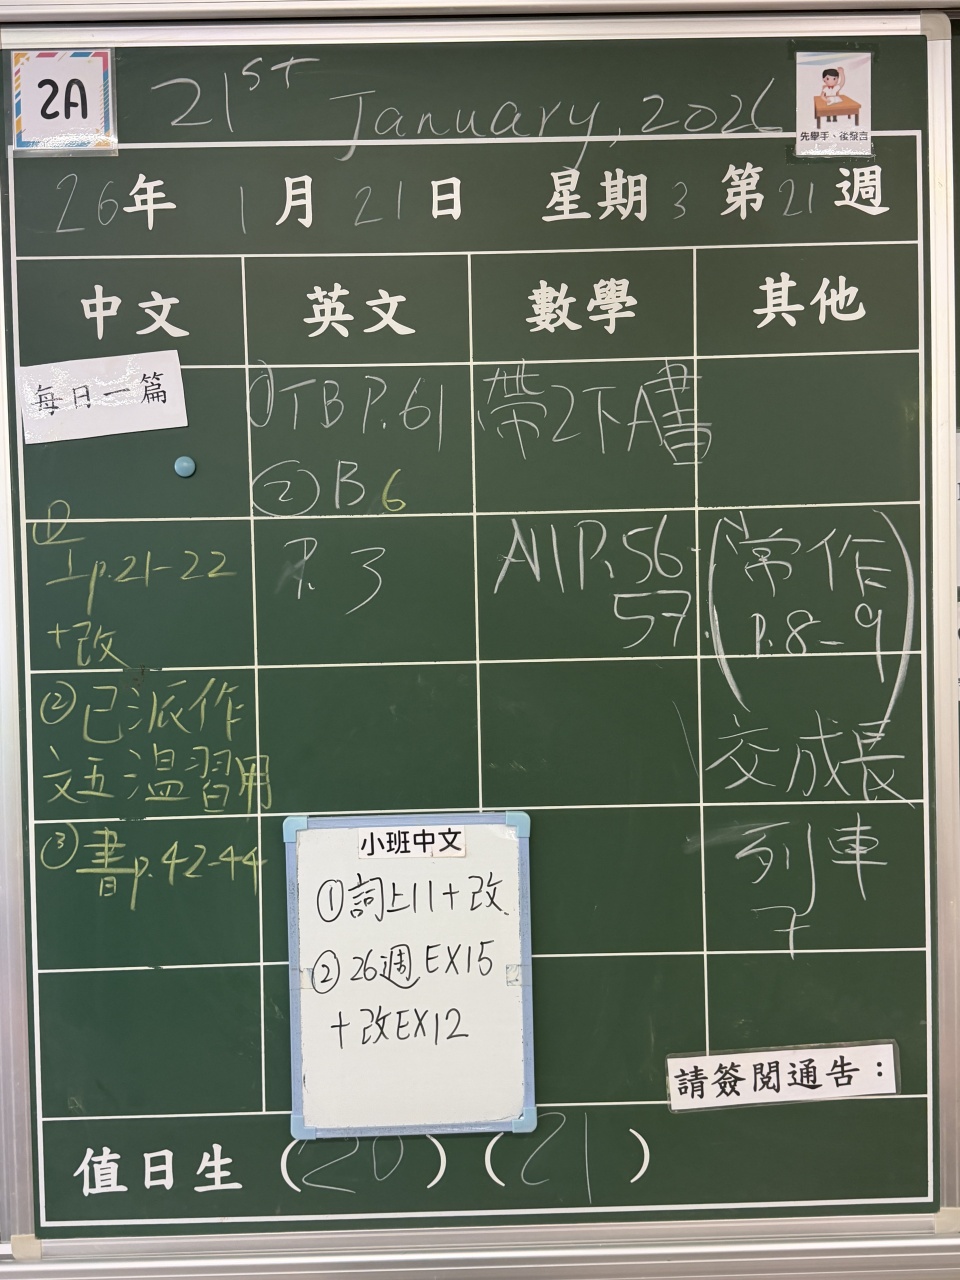 2A
21st January, 2026
先舉手、後發言
26年 1月 21日 星期 3 第 21 週
中文 英文 數學 其他
每日一篇
①
工p.21-22
+改
②已派作
文五溫習用
③書p.42-44
①TB P.61
②B 6
P. 3
帶2下A書
A11P.56-
57.
(常作
P.8-9)
交成長
列車
小班中文
①詞上11+改
②26週 EX15
+改EX12
請簽閱通告：
值日生 (20) (21)